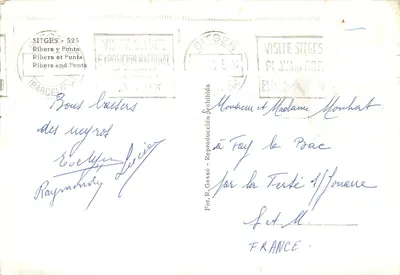 SITGES - 525
Ribera y Punta
Ribera et Punta
Ribera and Punta
VISITE SITGES
EXPOSICION NACIONAL
SITGES
VISITE SITGES
Bons baisers
des
Evelyne
Raymonde
Fot. R. Gassó - Reproducción prohibida
Monsieur et Madame
à Fay le Bac
par la Ferté s/Jouarre
S et M.
FRANCE.